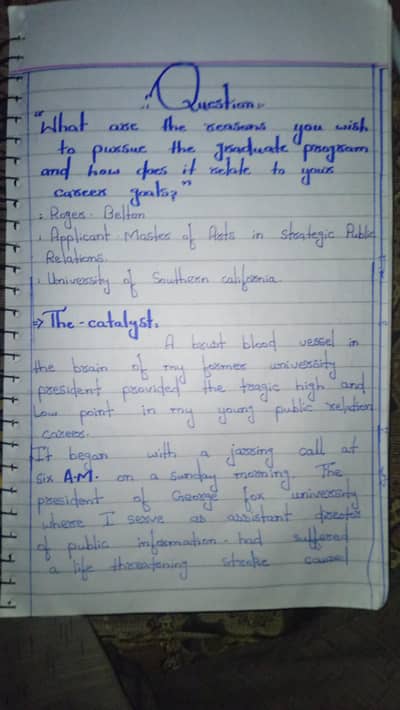 :: Question:-
"What are the reasons you wish
to pursue the graduate program
and how does it relate to your
career goals?"
: Roger. Belton
. Applicant. Master of Arts in Strategic Public
Relations.
. University of Southern california.
⇒ The-catalyst.
A burst blood vessel in
the brain of my former university
president provided the tragic high and
Low point in my young public relation
career.
It began with a jarring call at
six A.M. on a sunday morning. The
president of George fox university
where I serve as assistant director
of public information - had suffered
a life threatening stroke caused